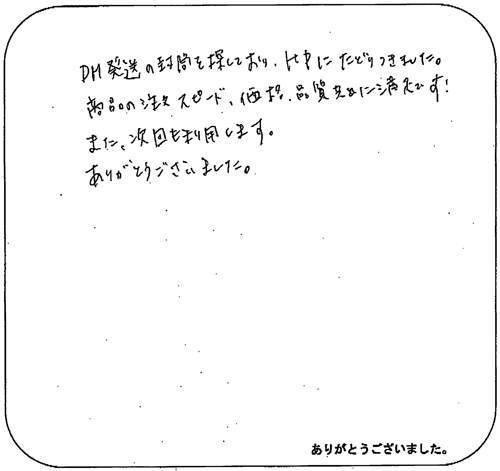 DM発送の封筒を探しており、HPにたどりつきました。
商品の注文スピード、価格、品質共に満足です！
また、次回も利用します。
ありがとうございました。
ありがとうございました。